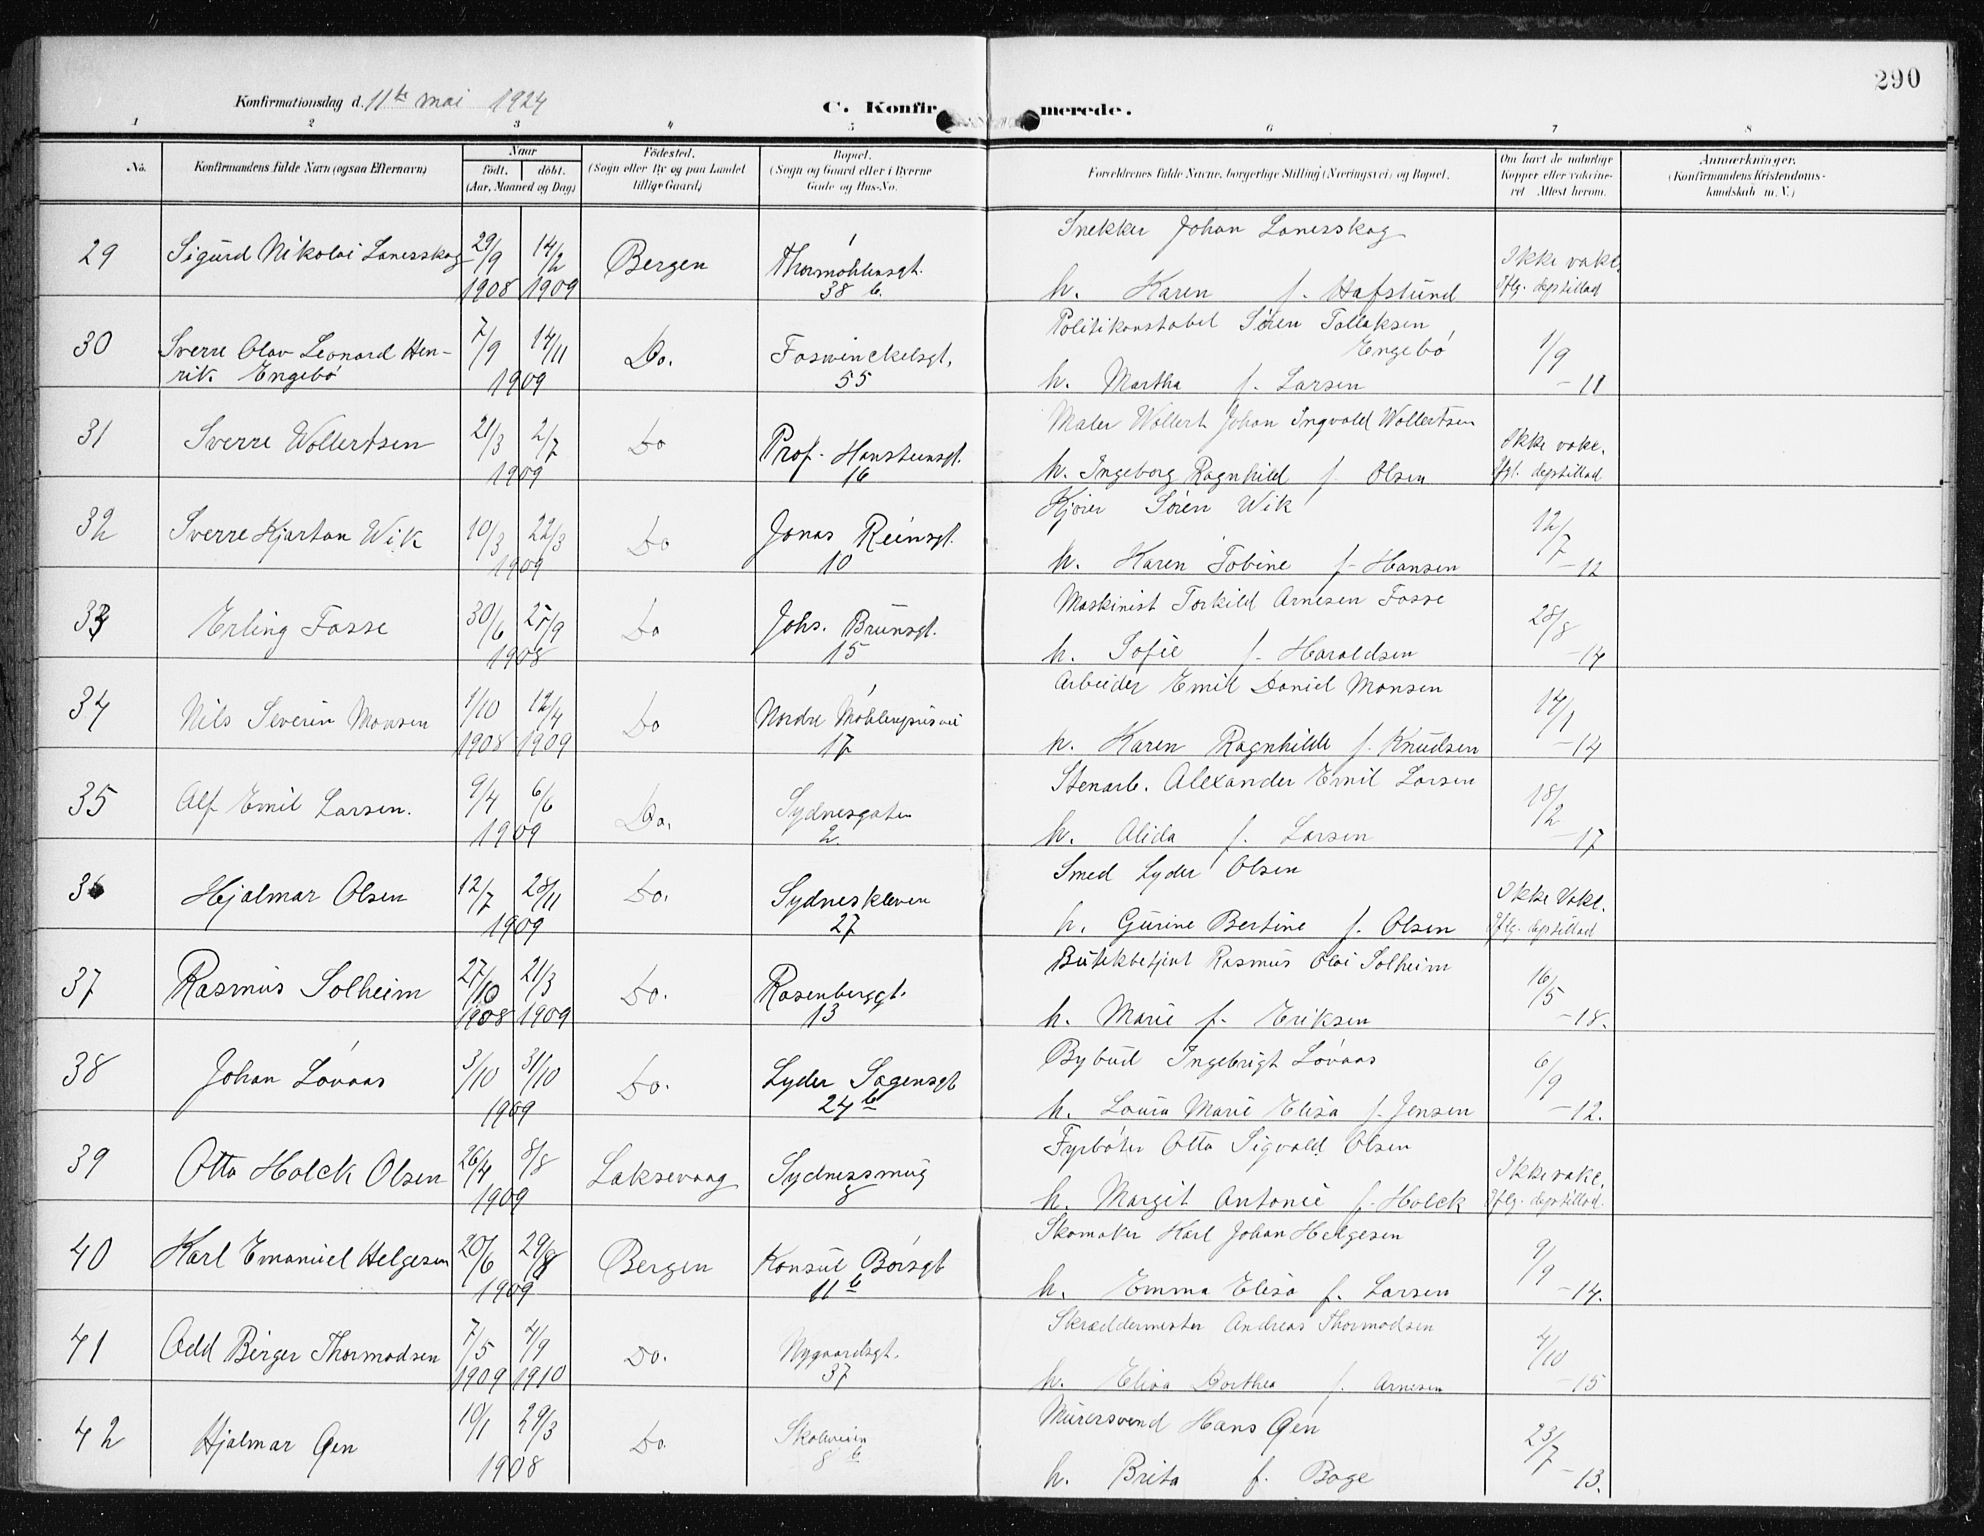 290
Konfirmationsdag d. 11te mai 1924
C. Konfirmerede.
1 2 3 4 5 6 7 8
No. Konfirmandens fulde Navn (ogsaa Efternavn) Naar født. døbt. (Aar, Maaned og Dag) Fødested. (Sogn eller By og paa Landet tillige Gaard) Bopæl. (Sogn og Gaard eller i Byerne Gade og Hus-No. Forældrenes fulde Navne, borgerlige Stilling (Næringsvei) og Bopæl. Om havt de naturlige Kopper eller vaccineret Attest herom. Anmerkninger. (Konfirmandens Kristendomskundskab m. V.)
29 Sigurd Nikolai Lanesskog 29/9 1908 14/2 1909 Bergen Thormøhlensgt. 38 b. Snekker Johan Lanesskog
h. Karen f. Hafslund Ikke vakc. Iflg. depstillad
30 Sverre Olav Leonard Henrik Engebø 7/9 14/11 1909 Do. Foswinckelsgt. 55 Politikonstabel Søren Tollaksen Engebø
h. Martha f. Larsen 1/9 - 11
31 Sverre Wollertsen 21/3 2/7 1909 Do Prof. Hansteensgt. 16 Maler Wollert Johan Ingvald Wollertsen
h. Ingeborg Ragnhild f. Olsen Ikke vakc. Ifgl. depstillad
32 Sverre Kjartan Wik 10/3 22/3 1909 Do Jonas Reinsgt. 10 Kjører Søren Wik
h. Karen Tobine f. Hansen 12/7 - 12
33 Erling Fosse 30/6 25/9 1908 Do Johs. Brunsgt. 15 Maskinist Torkild Arnesen Fosse
h. Sofie f. Haraldsen 28/8 - 14
34 Nils Severin Monsen 1/10 1908 12/4 1909 Do Nordre Møhlenprisvei 17 Arbeider Emil Daniel Monsen
h. Karen Ragnhilde f. Knudsen 14/1 - 14
35 Alf Emil Larsen. 9/4 6/6 1909 Do. Sydnesgaten 2 Stenarb. Alexander Emil Larsen
h. Alida f. Larsen 18/2 - 17
36 Hjalmar Olsen 12/7 28/11 1909 Do. Sydneskleven 27 Smed Lyder Olsen
h. Gurine Bertine f. Olsen Ikke Vakc. Iflg. depstillad
37 Rasmus Solheim 27/10 1908 21/3 1909 Do. Rosenberggt. 13 Butikbetjent Rasmus Olai Solheim
h. Marie f. Eriksen 16/5 - 18.
38 Johan Løvaas 3/10 31/10 1909 Do. Lyder Sagensgt 24 b Bybud Ingebrigt Løvaas
h. Laura Marie Elisa f. Jensen 6/9 - 12.
39 Otto Holck Olsen 26/4 8/8 1909 Laksevaag Sydnessmug 8 Fyrbøter Otto Sigvald Olsen
h. Margit Antonie f. Holck Ikke vakc. Iflg. depstillad.
40 Karl Emanuel Helgesen 20/6 29/8 1909 Bergen Konsul Børsgt 11 b Skomaker Karl Johan Helgesen
h. Emma Elisa f. Larsen 9/9 - 14.
41 Odd Birger Thormodsen 7/5 1909 4/9 1910 Do. Nygaardsgt. 37 Skræddermester Andreas Thormodsen
h. Elisa Dorthea f. Arnesen 4/10 - 15
42 Hjalmar Gjen 10/1 29/3 1908 Do. Skoleveien 8 b Murersvend Hans Gjen
h. Brita f. Boge 23/7 - 13.